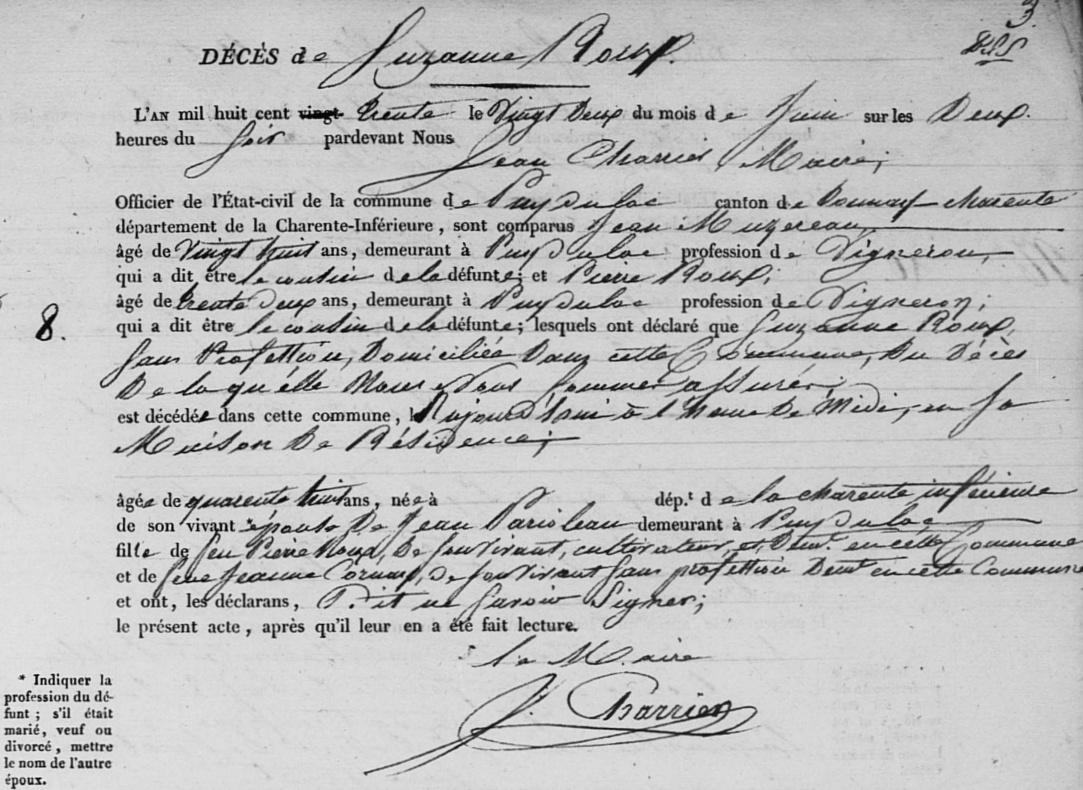 3
DÉCÈS de Suzanne Roux.
L'AN mil huit cent vingt trente le Vingt Deux du mois de Juin sur les Deux.
heures du Soir pardevant Nous
Jean Charrier, Maire,
Officier de l'État-civil de la commune de Puy du lac canton de Tonnay charente
département de la Charente-Inférieure, sont comparus Jean Muzereau,
âgé de Vingt huit ans, demeurant à Puy du lac profession de Vigneron,
qui a dit être le cousin de la défunte; et Pierre Roux;
âgé de trente deux ans, demeurant à Puy du lac profession de Vigneron;
8. qui a dit être le cousin de la défunte; lesquels ont déclaré que Suzanne Roux,
Sans Profession, Domiciliée Dans cette Commune, Du Décès
De la qu'elle Nous Nous Sommes assurés;
est décédée dans cette commune, aujourd'hui à l'heure De Midi, en Sa
Maison De Résidence;
âgée de quarente huit ans, née à dép.t de la charente inférieure
de son vivant épouse De Jean demeurant à Puy du lac
fille de feu Pierre Roux, De son vivant, cultivateur, et Demt. en cette Commune
et de feue Jeanne de son vivant Sans profession Demt en cette Commune
et ont, les déclarans, Dit ne Savoir Signer;
le présent acte, après qu'il leur en a été fait lecture.
le Maire
J. Charrier
* Indiquer la
profession du dé-
funt; s'il était
marié, veuf ou
divorcé, mettre
le nom de l'autre
époux.